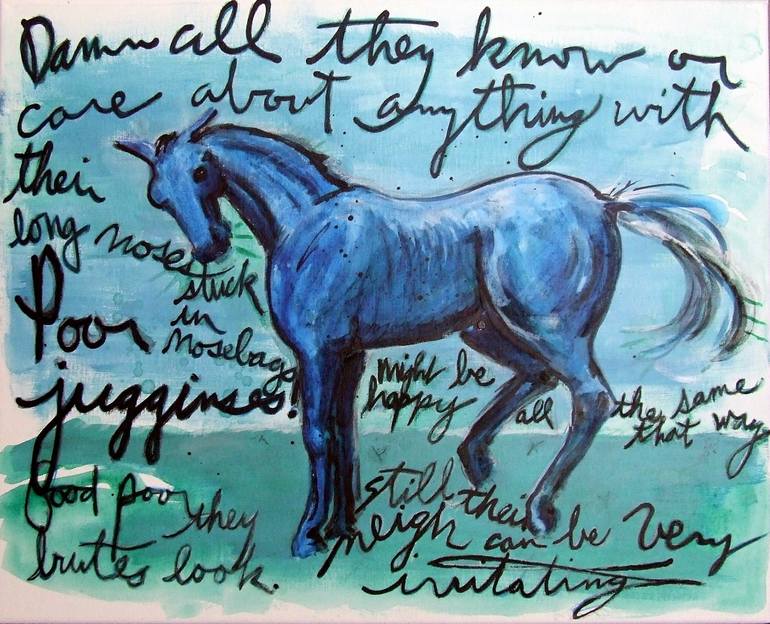 Damn all they know or
care about anything with
their
long noses
stuck
in
nosebags
Poor
jugginses!
might be
happy
all
the same
that way
Good poor
they
brutes look.
still their
neigh can be very
irritating